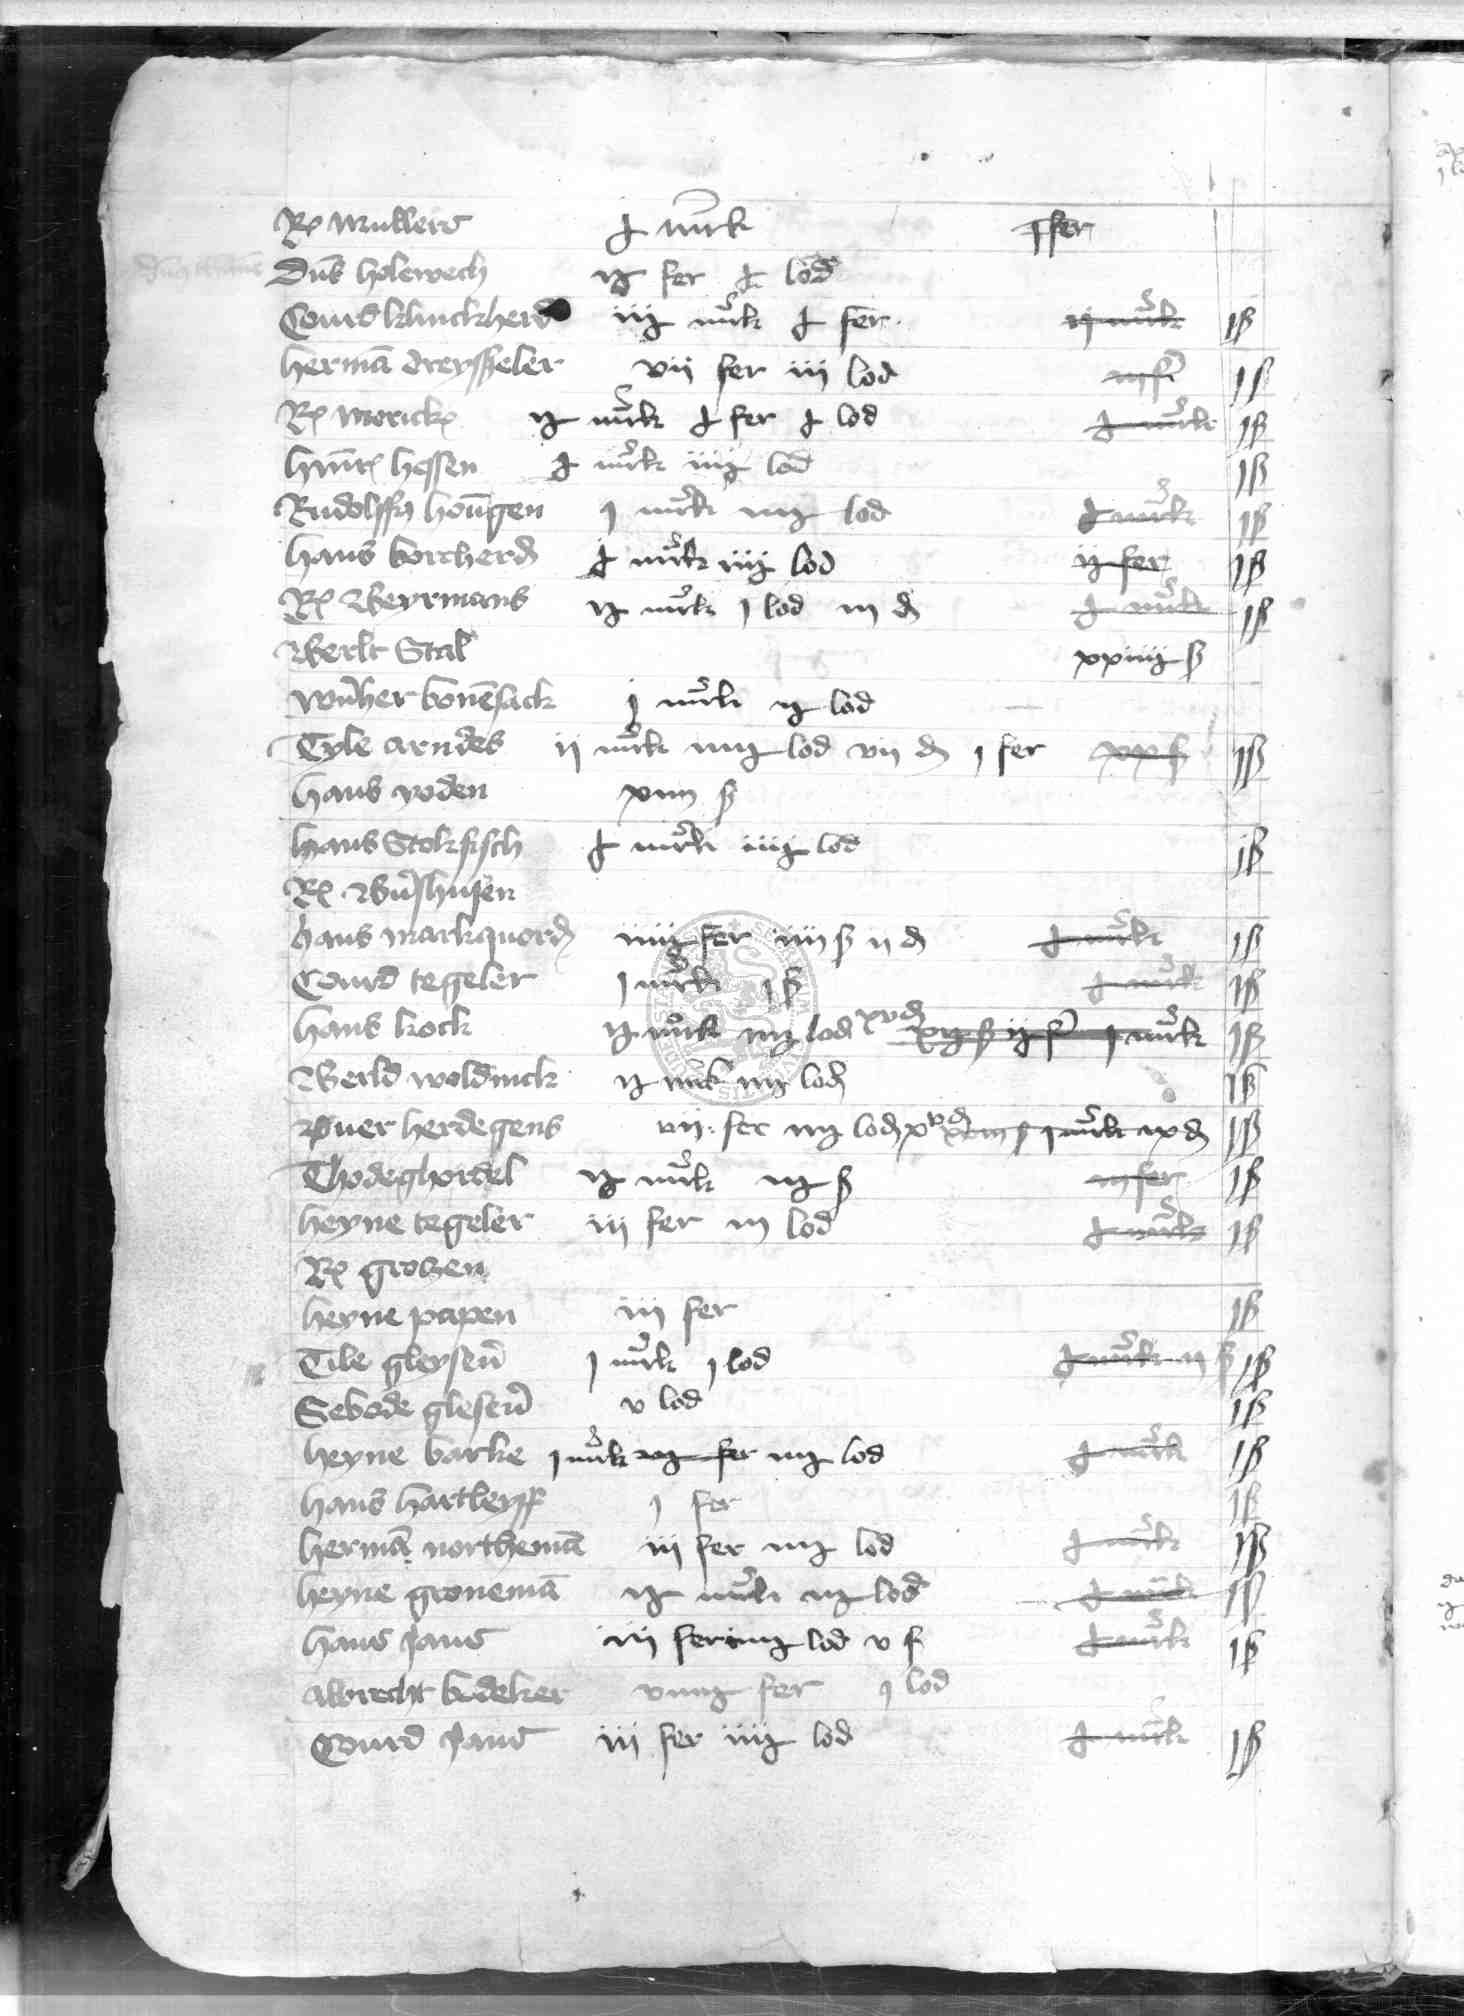 Rel mullers j mark j fer
Hans holewech ij fer j lod
Courd klinckherd iij mark j fer ij mark j ß
herman dreyßeler vij fer iij lod iij fer j ß
Rel moricke ij mark j fer j lod j mark j ß
hinrik hessen j mark iiij lod j ß
Rudolffy houngen j mark iiij lod j mark j ß
hans borcherd j mark iiij lod ij fer j ß
Rel Weyrmans ij mark j lod iij d j mark j ß
Werlt Stal xxiiij ß
wulher bonensack j mark ij lod
Tyle arndes ij mark iiij lod vij d j fer xx ß j ß
hans roden xiiij ß
hans Stokfisch j mark iiij lod j ß
Rel
hans markquord iiij fer iiij ß ij d j mark j ß
Courd tegeler j mark j ß j mark j ß
hans kock ij mark iij lod xv d xij ß ij fer j mark j ß
Werld woldinck ij mark iij lod j ß
herdegens vij fer iij lod j mark ix d j ß
Thodeghordel ij mark iij ß iij fer j ß
heyne tegeler iij fer iij lod j mark j ß
Rel groven
heyne papen iij fer j ß
Tile gleysen j mark j lod j mark ij ß j ß
Sebode glesen v lod j ß
heyne barke j mark vij fer iij lod j mark j ß
hans hartleyff j fer j ß
herman northeman iij fer iij lod j mark j ß
heyne groneman ij mark iij lod j mark j ß
hans Jans iij fer iiij lod v ß j mark j ß
albrecht bodeker viiij fer j lod
Courd Jans iij fer iiij lod j mark j ß